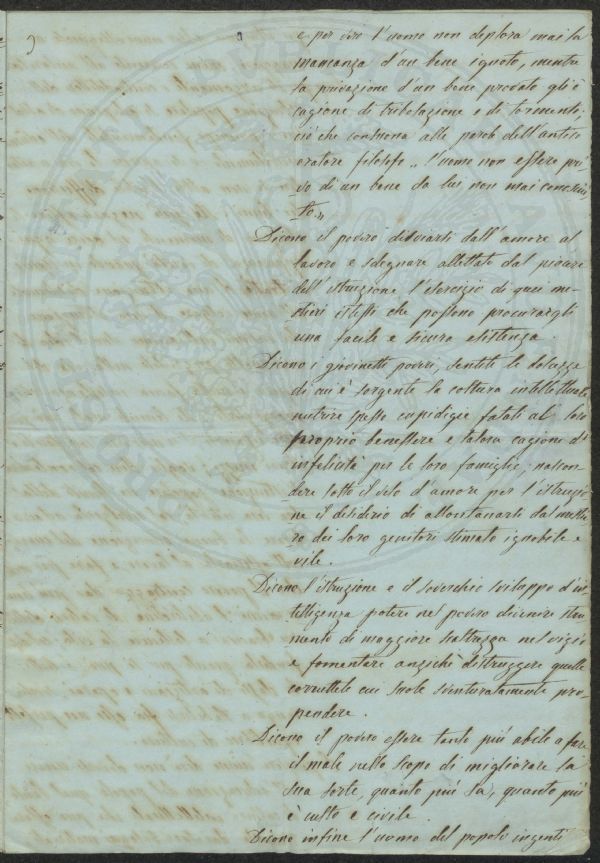 e per vero l'uomo non deplora mai la
mancanza d'un bene ignoto, mentre
la privazione d'un bene provato gli è
cagione di tribolazione e di tormento;
ciò che consuona alle parole dell'antico
oratore filosofo „ l'uomo non essere pri-
vo di un bene da lui non mai conosciu-
to „
Dicono il povero disviarsi dall'amore al
lavoro e sdegnare allettato dal piacere
dell'istruzione l'esercizio di quei me-
stieri istessi che possono procurargli
una facile e sicura esistenza.
Dicono i giovinetti poveri, sentite le dolcezze
di cui è sorgente la coltura intellettuale
nutrire spesso cupidigie fatali al loro
proprio benessere e talora cagione di
infelicità per le loro famiglie, nascon-
dere sotto il velo d'amore per l'istruzio-
ne il desiderio di allontanarsi dal mestie-
ro dei loro genitori stimato ignobile e
vile.
Dicono l'istruzione e il soverchio sviluppo d'in-
telligenza potere nel povero divenire stru-
mento di maggiore scaltrezza nel vizio
e fomentare anzichè distruggere quelle
corruttele cui suole sventuratamente pro-
pendere.
Dicono il povero essere tanto più abile a fare
il male nello scopo di migliorare la
sua sorte, quanto più sa, quanto più
è culto e civile.
Dicono infine l'uomo del popolo ingenti-